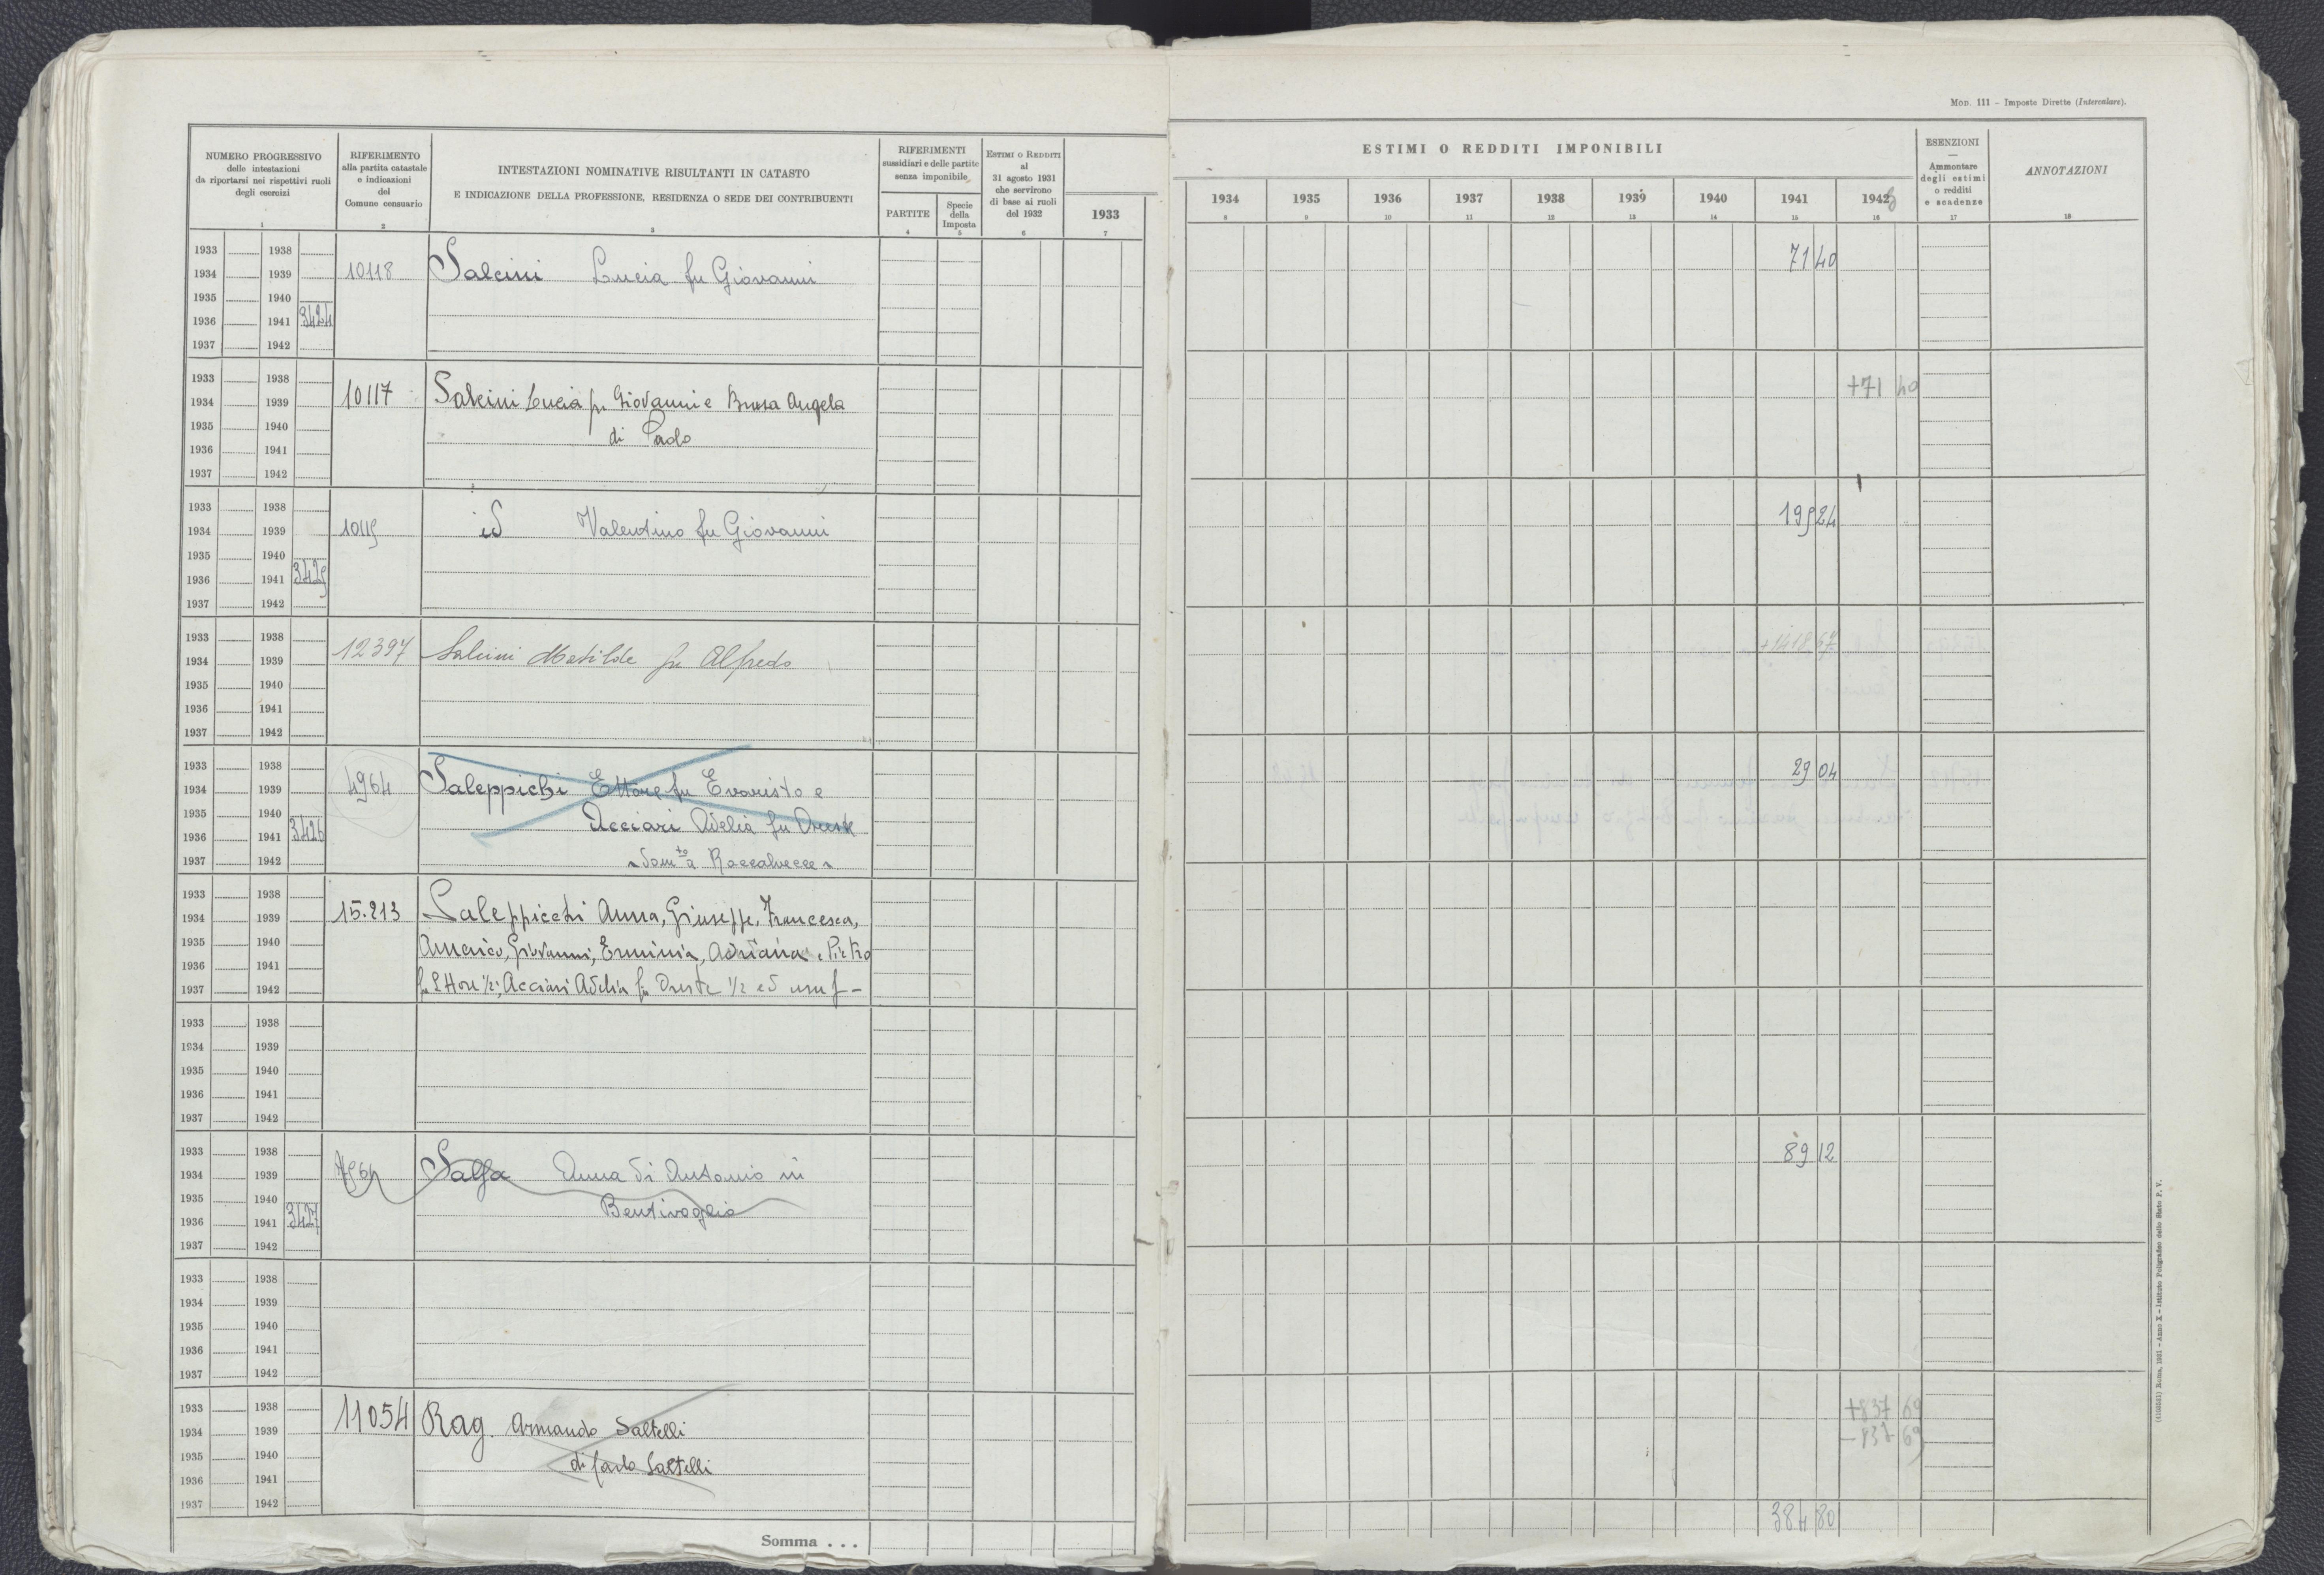 Mod. 111 – Imposte Dirette (Intercalare).
NUMERO PROGRESSIVO
delle intestazioni
da riportarsi nei rispettivi ruoli
degli esercizi
1
RIFERIMENTO
alla partita catastale
e indicazioni
del
Comune censuario
2
INTESTAZIONI NOMINATIVE RISULTANTI IN CATASTO
E INDICAZIONE DELLA PROFESSIONE, RESIDENZA O SEDE DEI CONTRIBUENTI
3
RIFERIMENTI
sussidiari e delle partite
senza imponibile
PARTITE
4
Specie
della
Imposta
5
Estimi o Redditi
al
31 agosto 1931
che servirono
di base ai ruoli
del 1932
6
1933
7
ESTIMI O REDDITI IMPONIBILI
1934 1935 1936 1937 1938 1939 1940 1941 1942
8 9 10 11 12 13 14 15 16
ESENZIONI
—
Ammontare
degli estimi
o redditi
e scadenze
17
ANNOTAZIONI
18
1933 1938
1934 1939 10118 Salcini Lucia fu Giovanni 71 40
1935 1940
1936 1941 3424
1937 1942
1933 1938 +71 40
1934 1939 10117 Salcini Lucia fu Giovanni e Brusa Angela
1935 1940 di Paolo
1936 1941
1937 1942
1933 1938 195 24
1934 1939 10115 id Valentino fu Giovanni
1935 1940
1936 1941 3425
1937 1942
1933 1938
1934 1939 12397 Salcini Matilde fu Alfredo +1418 67
1935 1940
1936 1941
1937 1942
1933 1938 29 04
1934 1939 4964 Saleppichi Ettore fu Evaristo e
1935 1940
1936 1941 3426 Acciari Adelia fu Oreste
1937 1942 domto a Roccalvecce
1933 1938
1934 1939 15.213 Saleppicchi Anna, Giuseppe, Francesca,
1935 1940 Americo, Giovanni, Erminia, Adriana e Pietro
1936 1941
1937 1942 fu Ettore 1/2; Acciari Adelia fu Oreste 1/2 ed usuf–
1933 1938
1934 1939
1935 1940
1936 1941
1937 1942
1933 1938 89 12
1934 1939 Salfa Anna di Antonio in
1935 1940
1936 1941 3427 Bentivoglio
1937 1942
1933 1938
1934 1939
1935 1940
1936 1941
1937 1942
1933 1938 11054 Rag. Armando Saltelli +837 69
1934 1939 –837 69
1935 1940 di Carlo Saltelli
1936 1941
1937 1942
Somma . . . 384 80
Roma, 1931 – Anno X – Istituto Poligrafico dello Stato P. V.